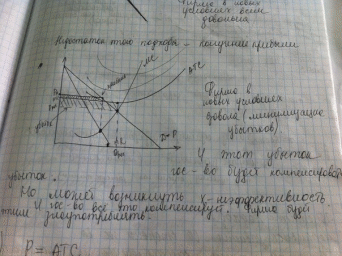 Фирма в
новых условиях всем
довольна
Недостаток этого подхода – получение прибыли
MC
ATC
Фирма в
новых условиях
довола (минимизация
убытков)
D=P
И этот убыток
гос-во будет компенсировать
убыток.
Но может возникнуть x-неэффективность
И гос-во все это компенсирует. Фирма будет
этим злоупотреблять.
P = ATC